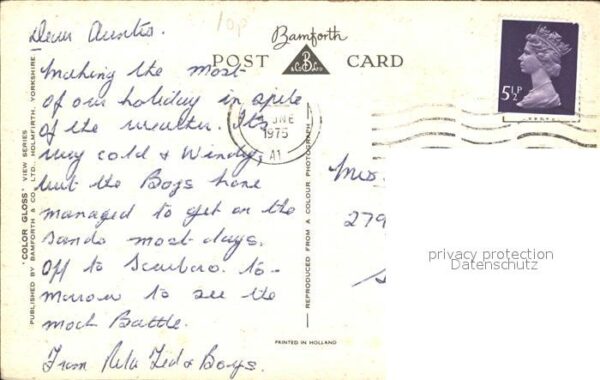 Dear Aunties.
10p
Making the most
of our holiday in spite
of the weather. Its
very cold & Windy,
but the Boys have
managed to get on the
sands most days.
Off to Scarboro. to-
morrow to see the
mock Battle.
From Rita Ted & Boys.
"COLOR GLOSS" VIEW SERIES
PUBLISHED BY BAMFORTH & CO., LTD., HOLMFIRTH, YORKSHIRE
Bamforth
POST CARD
B
& Co Ltd
UNE
1975
A1
REPRODUCED FROM A COLOUR PHOTOGRAPH
PRINTED IN HOLLAND
5½P
279
privacy protection
Datenschutz